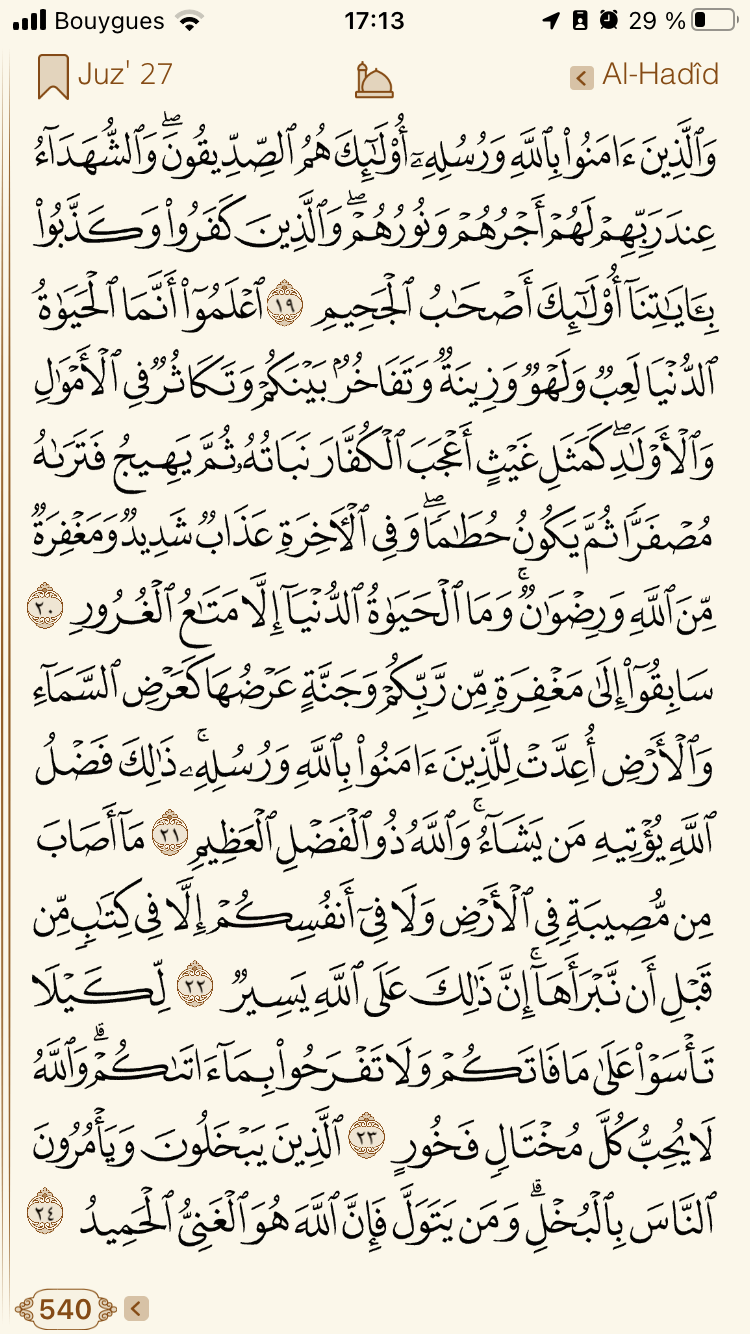 Bouygues 17:13 29 %
Juz' 27 Al-Hadîd
وَٱلَّذِينَ ءَامَنُوا۟ بِٱللَّهِ وَرُسُلِهِۦٓ أُو۟لَـٰٓئِكَ هُمُ ٱلصِّدِّيقُونَ ۖ وَٱلشُّهَدَآءُ
عِندَ رَبِّهِمْ لَهُمْ أَجْرُهُمْ وَنُورُهُمْ ۖ وَٱلَّذِينَ كَفَرُوا۟ وَكَذَّبُوا۟
بِـَٔايَـٰتِنَآ أُو۟لَـٰٓئِكَ أَصْحَـٰبُ ٱلْجَحِيمِ ١٩ ٱعْلَمُوٓا۟ أَنَّمَا ٱلْحَيَوٰةُ
ٱلدُّنْيَا لَعِبٌ وَلَهْوٌ وَزِينَةٌ وَتَفَاخُرٌۢ بَيْنَكُمْ وَتَكَاثُرٌ فِى ٱلْأَمْوَٰلِ
وَٱلْأَوْلَـٰدِ ۖ كَمَثَلِ غَيْثٍ أَعْجَبَ ٱلْكُفَّارَ نَبَاتُهُۥ ثُمَّ يَهِيجُ فَتَرَىٰهُ
مُصْفَرًّا ثُمَّ يَكُونُ حُطَـٰمًا ۖ وَفِى ٱلْـَٔاخِرَةِ عَذَابٌ شَدِيدٌ وَمَغْفِرَةٌ
مِّنَ ٱللَّهِ وَرِضْوَٰنٌ ۚ وَمَا ٱلْحَيَوٰةُ ٱلدُّنْيَآ إِلَّا مَتَـٰعُ ٱلْغُرُورِ ٢٠
سَابِقُوٓا۟ إِلَىٰ مَغْفِرَةٍ مِّن رَّبِّكُمْ وَجَنَّةٍ عَرْضُهَا كَعَرْضِ ٱلسَّمَآءِ
وَٱلْأَرْضِ أُعِدَّتْ لِلَّذِينَ ءَامَنُوا۟ بِٱللَّهِ وَرُسُلِهِۦ ۚ ذَٰلِكَ فَضْلُ
ٱللَّهِ يُؤْتِيهِ مَن يَشَآءُ ۚ وَٱللَّهُ ذُو ٱلْفَضْلِ ٱلْعَظِيمِ ٢١ مَآ أَصَابَ
مِن مُّصِيبَةٍ فِى ٱلْأَرْضِ وَلَا فِىٓ أَنفُسِكُمْ إِلَّا فِى كِتَـٰبٍ مِّن
قَبْلِ أَن نَّبْرَأَهَآ ۚ إِنَّ ذَٰلِكَ عَلَى ٱللَّهِ يَسِيرٌ ٢٢ لِّكَيْلَا
تَأْسَوْا۟ عَلَىٰ مَا فَاتَكُمْ وَلَا تَفْرَحُوا۟ بِمَآ ءَاتَىٰكُمْ ۗ وَٱللَّهُ
لَا يُحِبُّ كُلَّ مُخْتَالٍ فَخُورٍ ٢٣ ٱلَّذِينَ يَبْخَلُونَ وَيَأْمُرُونَ
ٱلنَّاسَ بِٱلْبُخْلِ ۗ وَمَن يَتَوَلَّ فَإِنَّ ٱللَّهَ هُوَ ٱلْغَنِىُّ ٱلْحَمِيدُ ٢٤
540